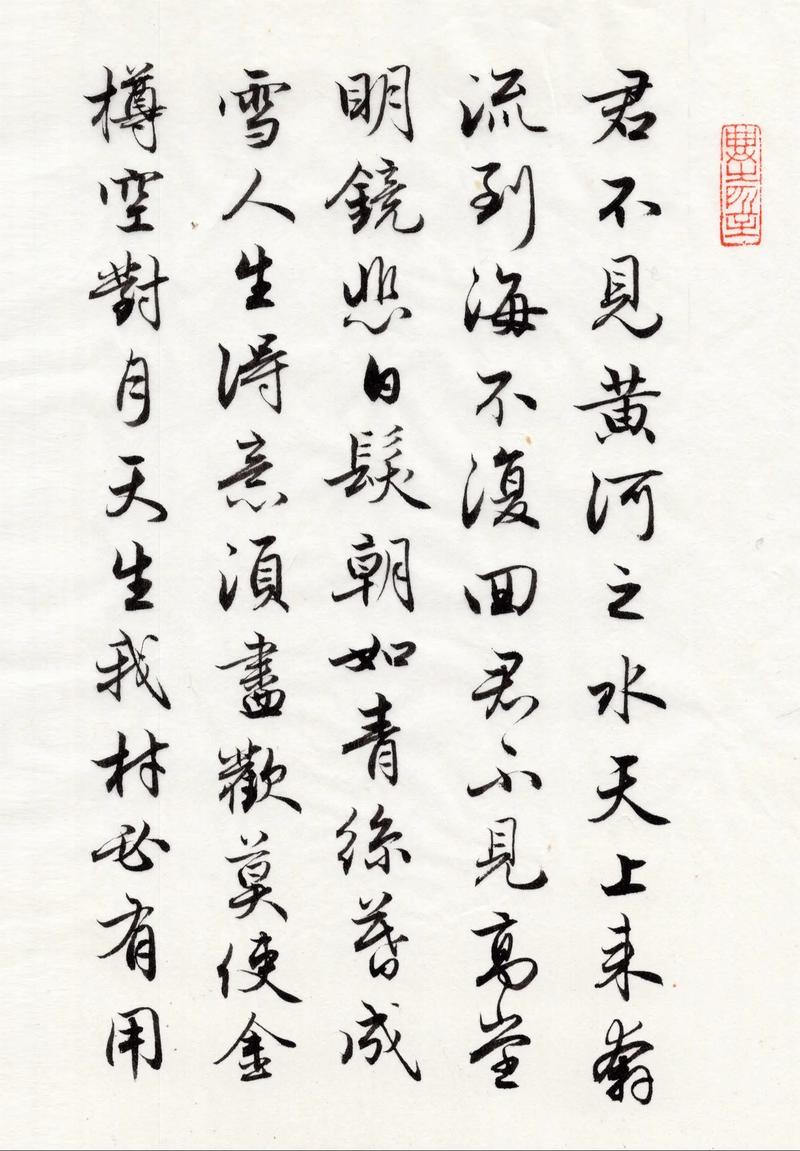 君不見黃河之水天上来奔
流到海不復回君不見高堂
明鏡悲白髮朝如青絲暮成
雪人生得意須盡歡莫使金
樽空對月天生我材必有用